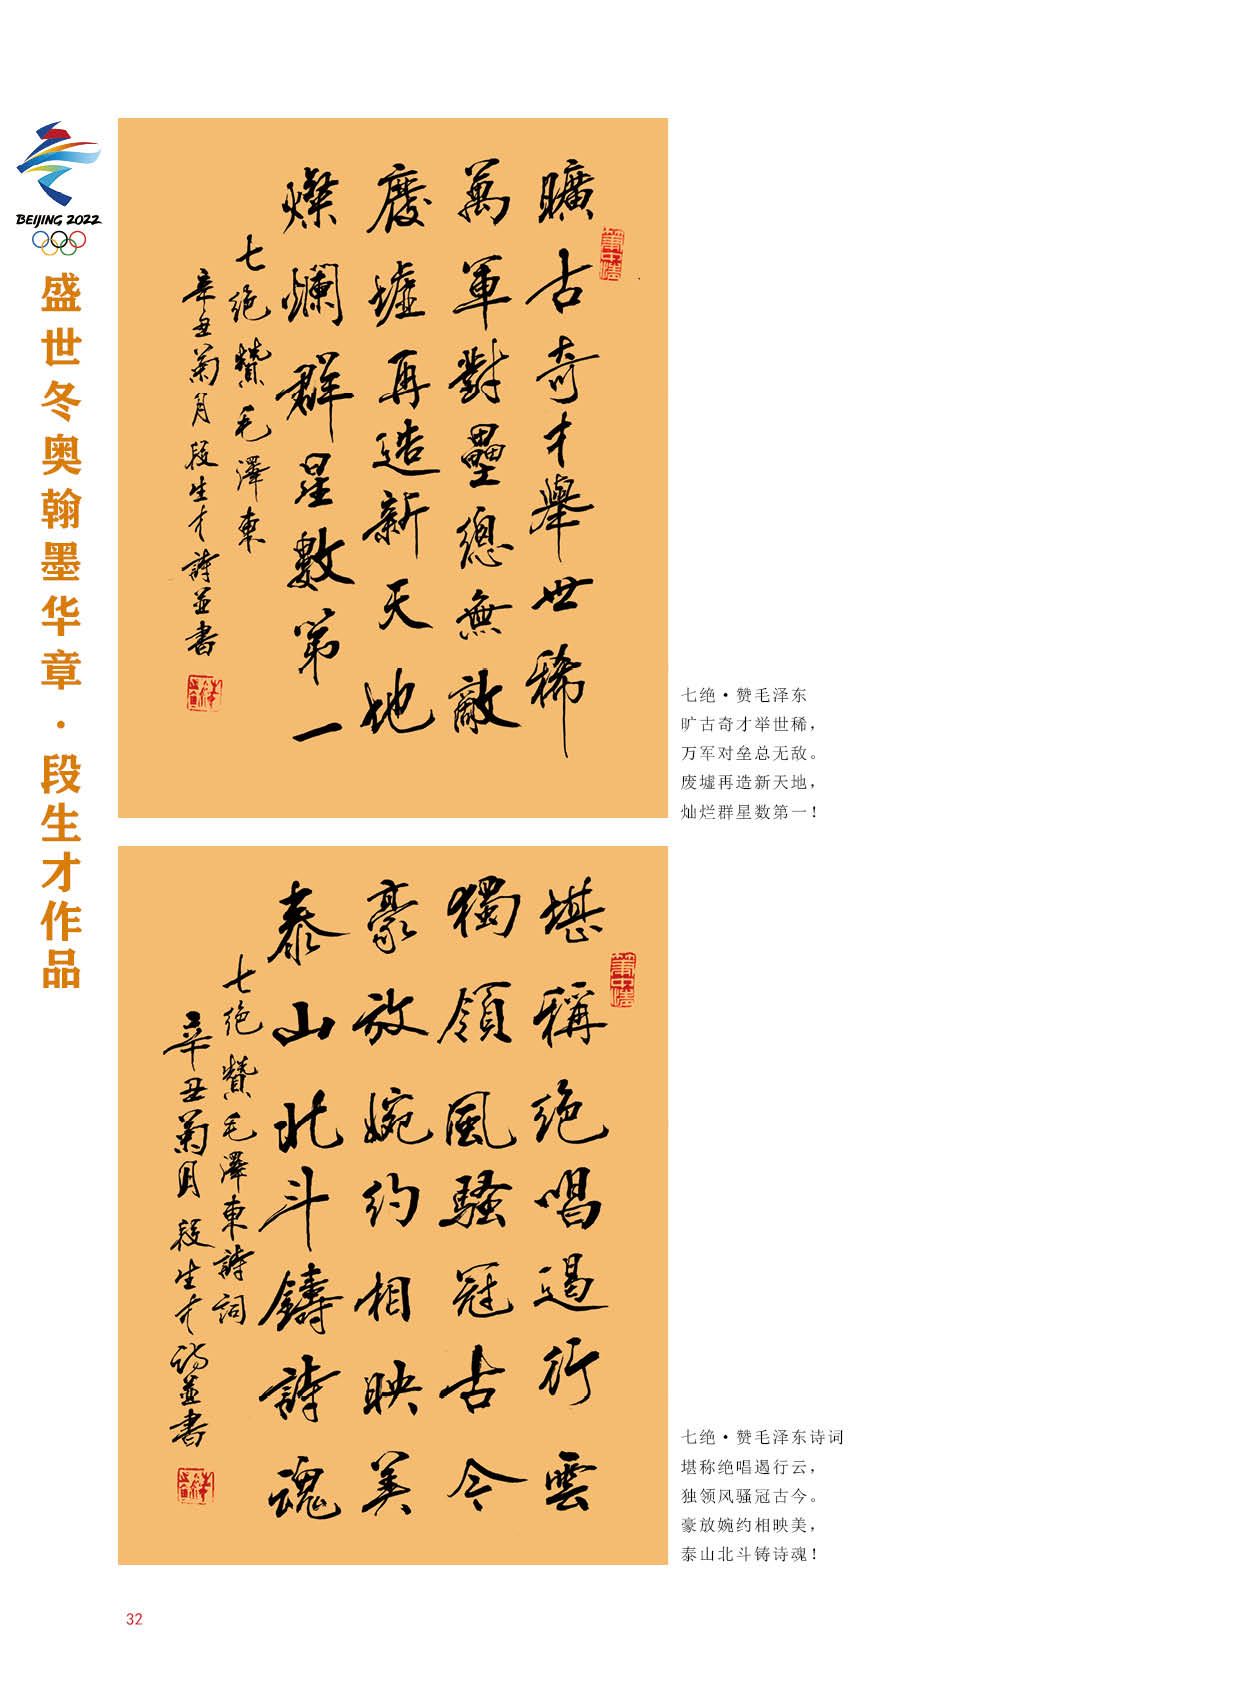 BEIJING 2022
盛世冬奥翰墨华章·段生才作品
曠古奇才舉世稀
萬軍對壘總無敵
廢墟再造新天地
燦爛群星數第一
七绝赞毛澤東
辛丑菊月段生才詩並書
七绝·赞毛泽东
旷古奇才举世稀，
万军对垒总无敌。
废墟再造新天地，
灿烂群星数第一！
堪稱绝唱遏行雲
獨領風騷冠古今
豪放婉约相映美
泰山北斗鑄詩魂
七绝赞毛澤東詩詞
辛丑菊月段生才诗並書
七绝·赞毛泽东诗词
堪称绝唱遏行云，
独领风骚冠古今。
豪放婉约相映美，
泰山北斗铸诗魂！
32